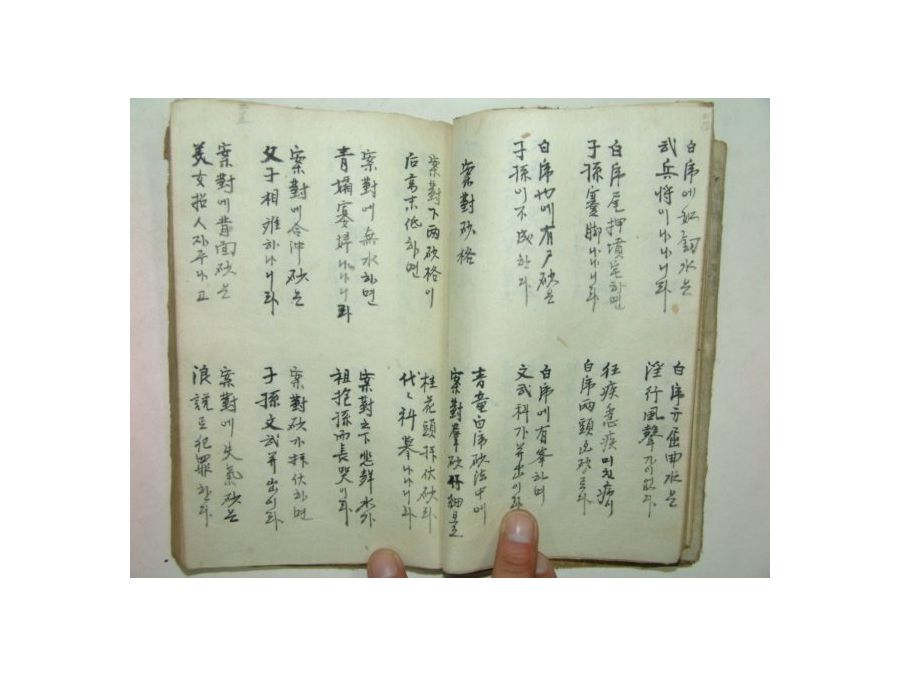 白虎에
武兵將이나나니라
白虎尾押墳宅하면
子孫蹇脚나나니라
白虎也에有尸砂는
子孫이不成한다
案對砂格
案對下兩砂格이
后高末低하면
案對에無水하면
青孀寡婦나나니라
案對에合冲砂는
父子相離하나니라
案對에背面砂는
美女招人자주나고
白虎方屈曲水는
淫行風聲
狂疾急疾미친病이
白虎兩頭
白虎에有峯하며
文武科가并出이라
青竜白虎砂法中에
案對羣砂
桂花頭拜伏砂라
代々科擧나니라
案對之下
祖抱孫而長哭이라
案對砂가拜伏하면
子孫文武并出이라
案對에失氣砂는
浪說로犯罪한다